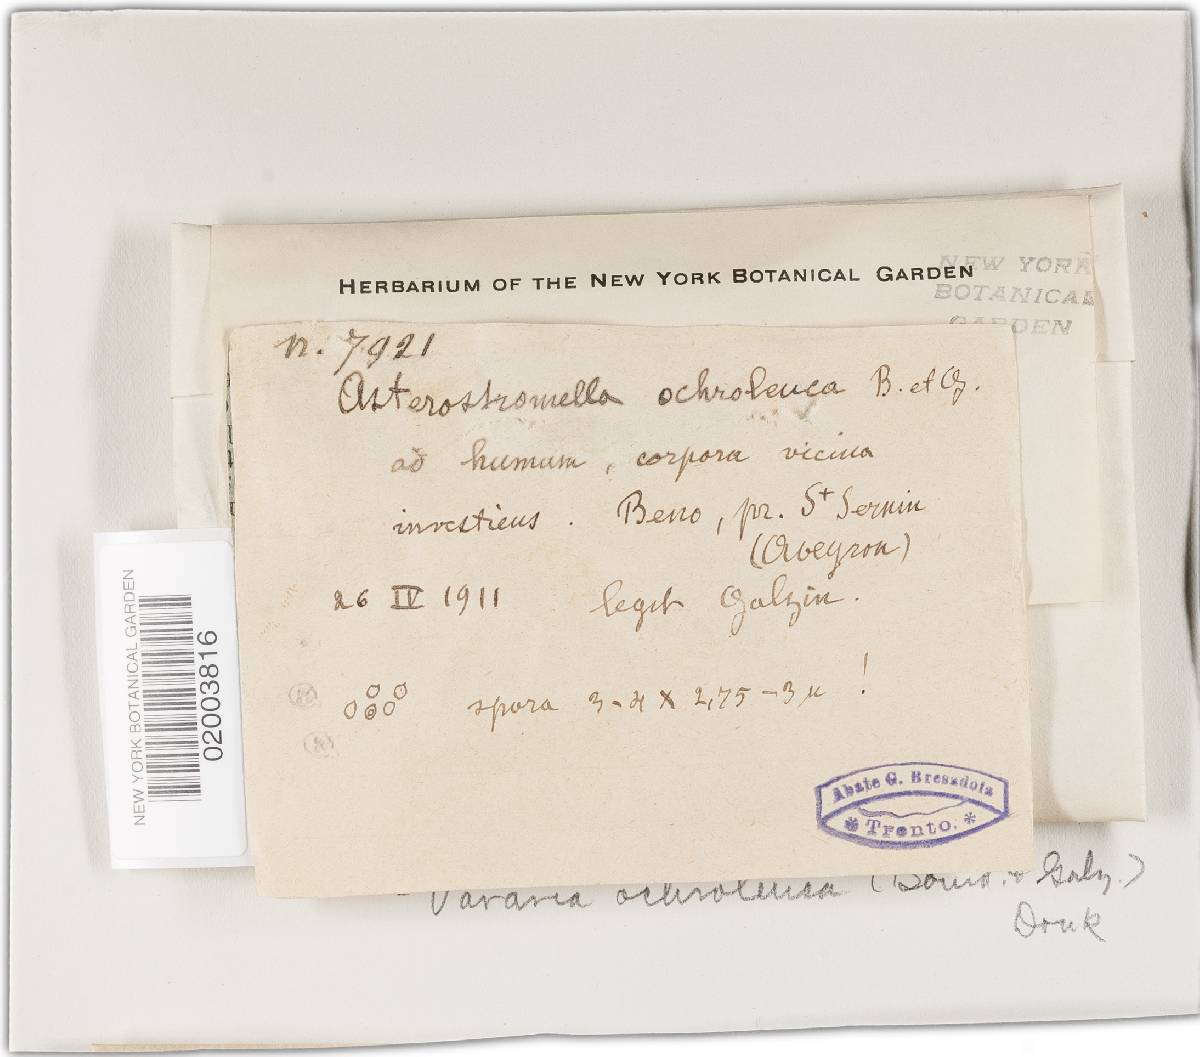 HERBARIUM OF THE NEW YORK BOTANICAL GARDEN
NEW YORK
BOTANICAL
GARDEN
n. 7921
Asterostromella ochroleuca B. et G.
ad humum, corpora vicina
investiens. Beno, pr. St Sernin
(Aveyron)
26 IV 1911 legit Galzin.
spora 3-4 x 2,75-3 µ !
Abate G. Bresadola
* Trento. *
NEW YORK BOTANICAL GARDEN
02003816
Vararia ochroleuca (Bourd. & Galz.)
Donk